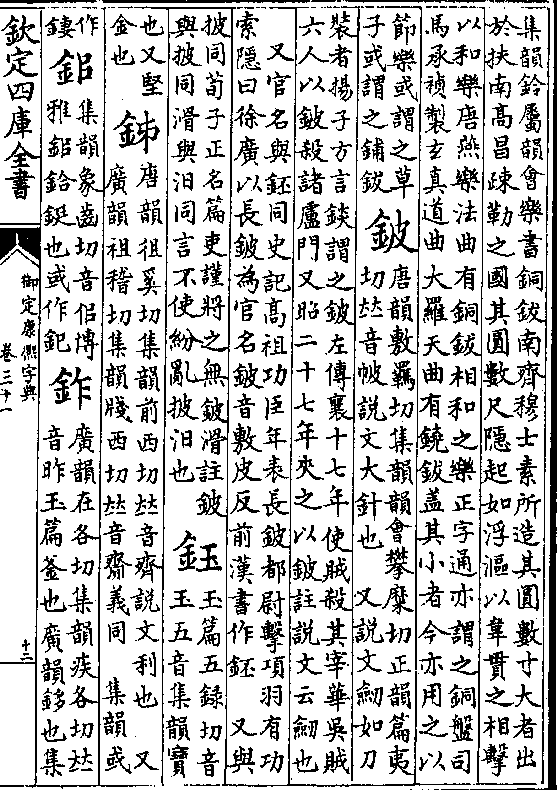 集韻鈴屬韻會樂書銅鈸南齊穆士素所造其圓數寸大者出
於扶南高昌疎勒之國其圓數尺隱起如浮漚以韋貫之相擊
以和樂唐燕樂法曲有銅鈸相和之樂正字通亦謂之銅盤司
馬承禎製玄真道曲大羅天曲有鐃鈸蓋其小者今亦用之以
節樂或謂之草
子或謂之鋪鈸
鈹
唐韻敷羈切集韻韻會攀糜切正韻篇夷
切𠀤音帔說文大針也 又說文劒如刀
裝者揚子方言錟謂之鈹左傳襄十七年使賊殺其宰華吳賊
六人以鈹殺諸盧門又昭二十七年夾之以鈹註說文云劒也
又官名與鉟同史記高祖功臣年表長鈹都尉擊項羽有功
索隱曰徐廣以長鈹為官名鈹音敷皮反前漢書作鉟 又與
披同荀子正名篇吏謹將之無鈹滑註鈹
與披同滑與汨同言不使紛亂披汨也
鈺
玉篇五錄切音
玉五音集韻寶
也又堅
金也
唐韻徂奚切集韻前西切𠀤音齊說文利也 又
廣韻祖稽切集韻牋西切𠀤音齋義同 集韻或
作
鉯
集韻象齒切音佀博
雅鉯鉿鋌也或作
鈼
廣韻在各切集韻疾各切𠀤
音昨玉篇釜也廣韻鉹也集
欽定四庫全書
御定康熙字典
卷三十一
十二